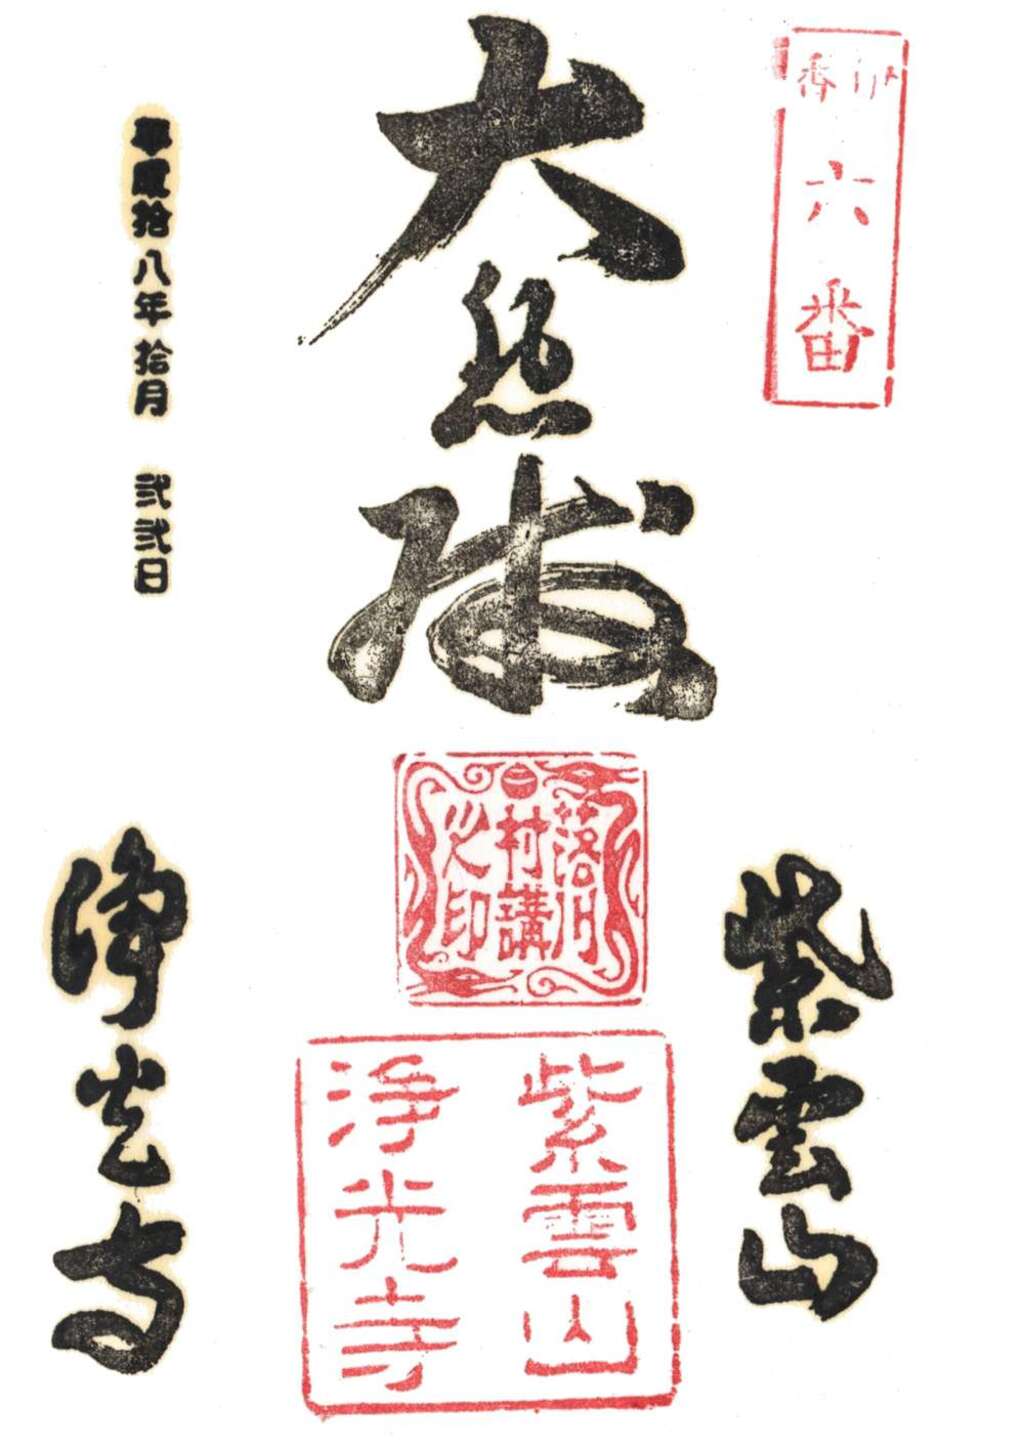 六番
紫雲山
大悲殿
落川
村講
之印
紫雲山
浄光寺
平成拾八年拾月 弐弐日
浄光寺